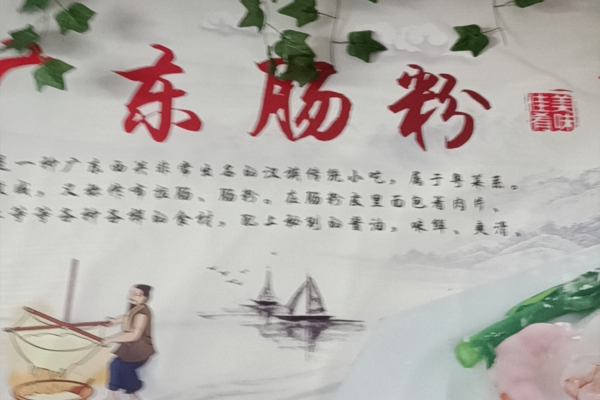 广东肠粉
美味佳肴
是一种广东西关非常出名的汉族传统小吃，属于粤菜系。
又被称布拉肠、肠粉。在肠粉皮里面包着肉片、
等等各种各样的食材，配上秘制的酱油，味鲜、爽滑。